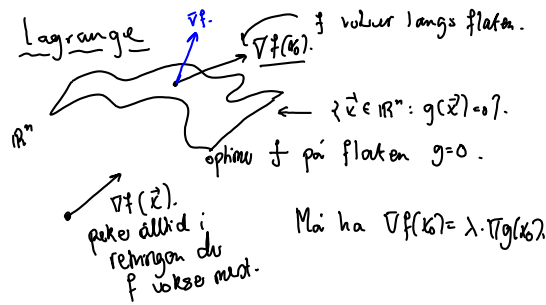 Lagrange
∇f.
f vokser langs flaten.
∇f(x₀).
{x⃗ ∈ ℝⁿ : g(x⃗)=0}.
ℝⁿ
optimer f på flaten g=0.
∇f(x⃗).
peker alltid i
retningen du
f vokser mest.
Må ha ∇f(x₀) = λ·∇g(x₀).